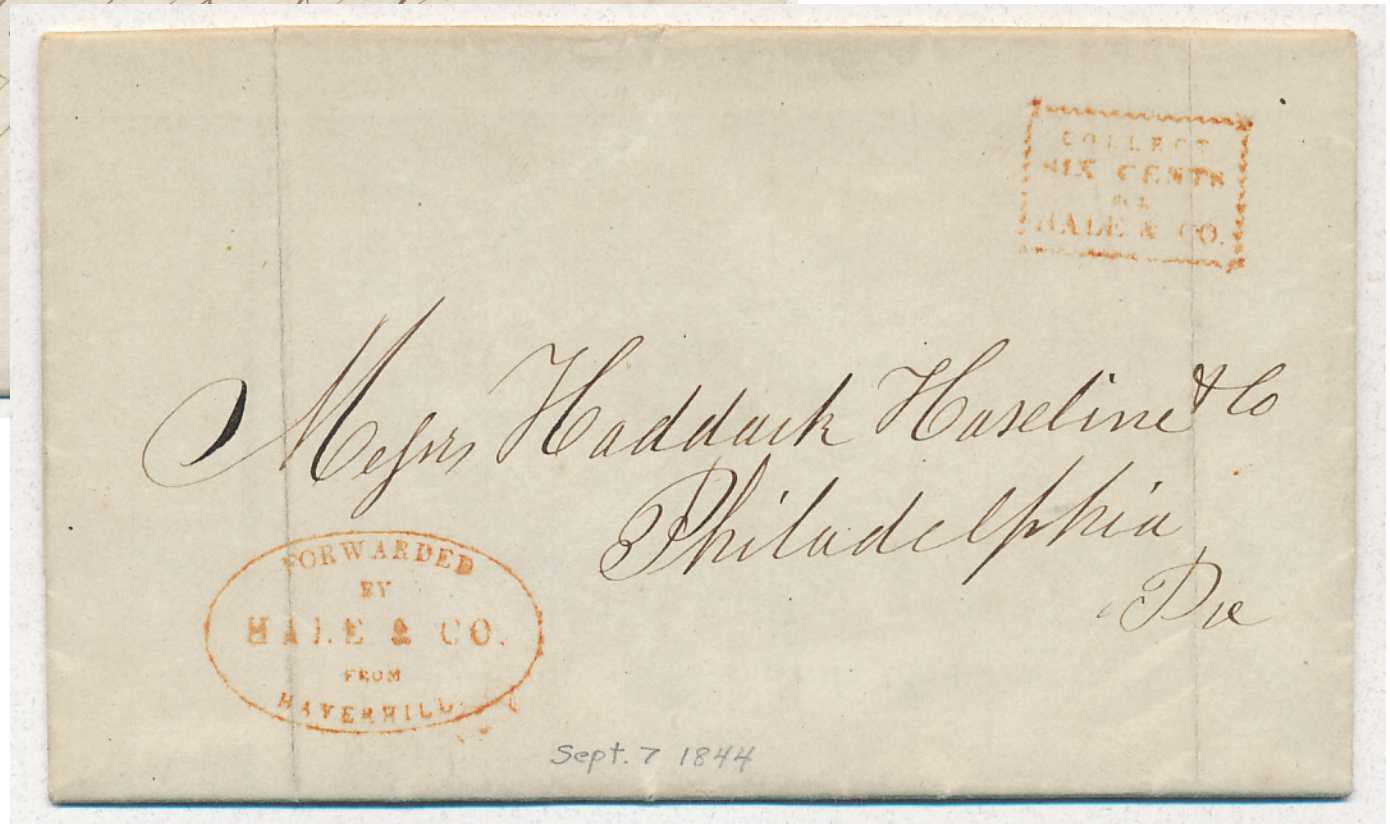 COLLECT
SIX CENTS
FOR
HALE & CO.
Messrs Haddock Haseline & Co
Philadelphia
Pa
FORWARDED
BY
HALE & CO.
FROM
HAVERHILL.
Sept. 7 1844